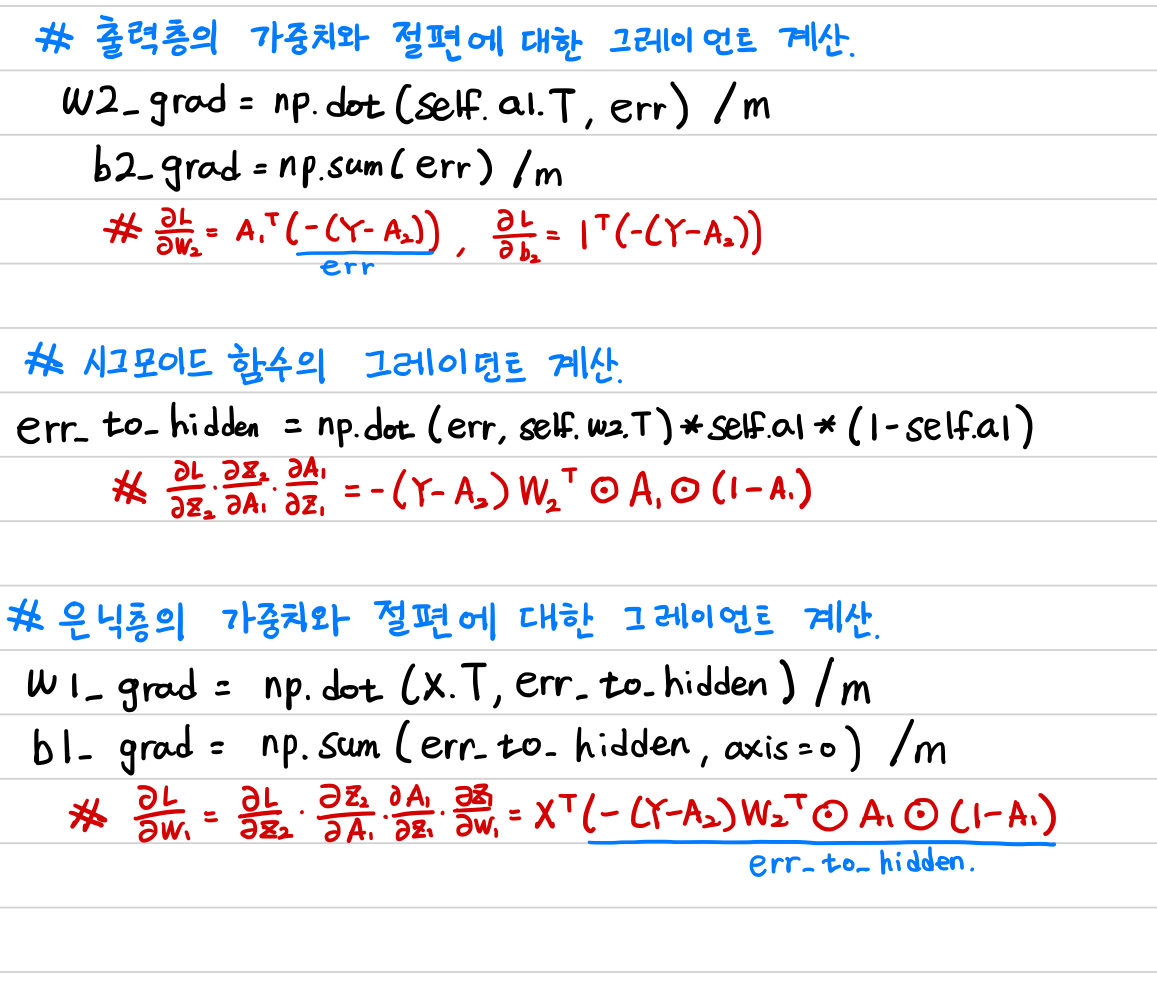 # 출력층의 가중치와 절편에 대한 그레이언트 계산.
w2_grad = np.dot(self.a1.T, err) /m
b2_grad = np.sum(err) /m
# ∂L/∂W₂ = A₁ᵀ(-(Y-A₂)), ∂L/∂b₂ = 1ᵀ(-(Y-A₂))
err
# 시그모이드 함수의 그레이던트 계산.
err_to_hidden = np.dot(err, self.w2.T)*self.a1*(1-self.a1)
# ∂L/∂Z₂·∂Z₂/∂A₁·∂A₁/∂Z₁ = -(Y-A₂)W₂ᵀ⊙A₁⊙(1-A₁)
# 은닉층의 가중치와 절편에 대한 그레이언트 계산.
w1_grad = np.dot(x.T, err_to_hidden) /m
b1_grad = np.sum(err_to_hidden, axis=0) /m
# ∂L/∂W₁ = ∂L/∂Z₂·∂Z₂/∂A₁·∂A₁/∂Z₁·∂Z₁/∂W₁ = Xᵀ(-(Y-A₂)W₂ᵀ⊙A₁⊙(1-A₁)
err_to_hidden.